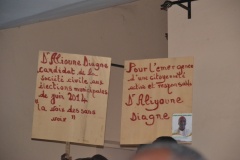 Dr Alioune Diagne
candidat de la
société civile aux
élections municipales
de juin 2014
"la voix des sans
voix"
Pour l'émergence
d'une citoyenneté
active et responsable
Dr Aliyoune
Diagne